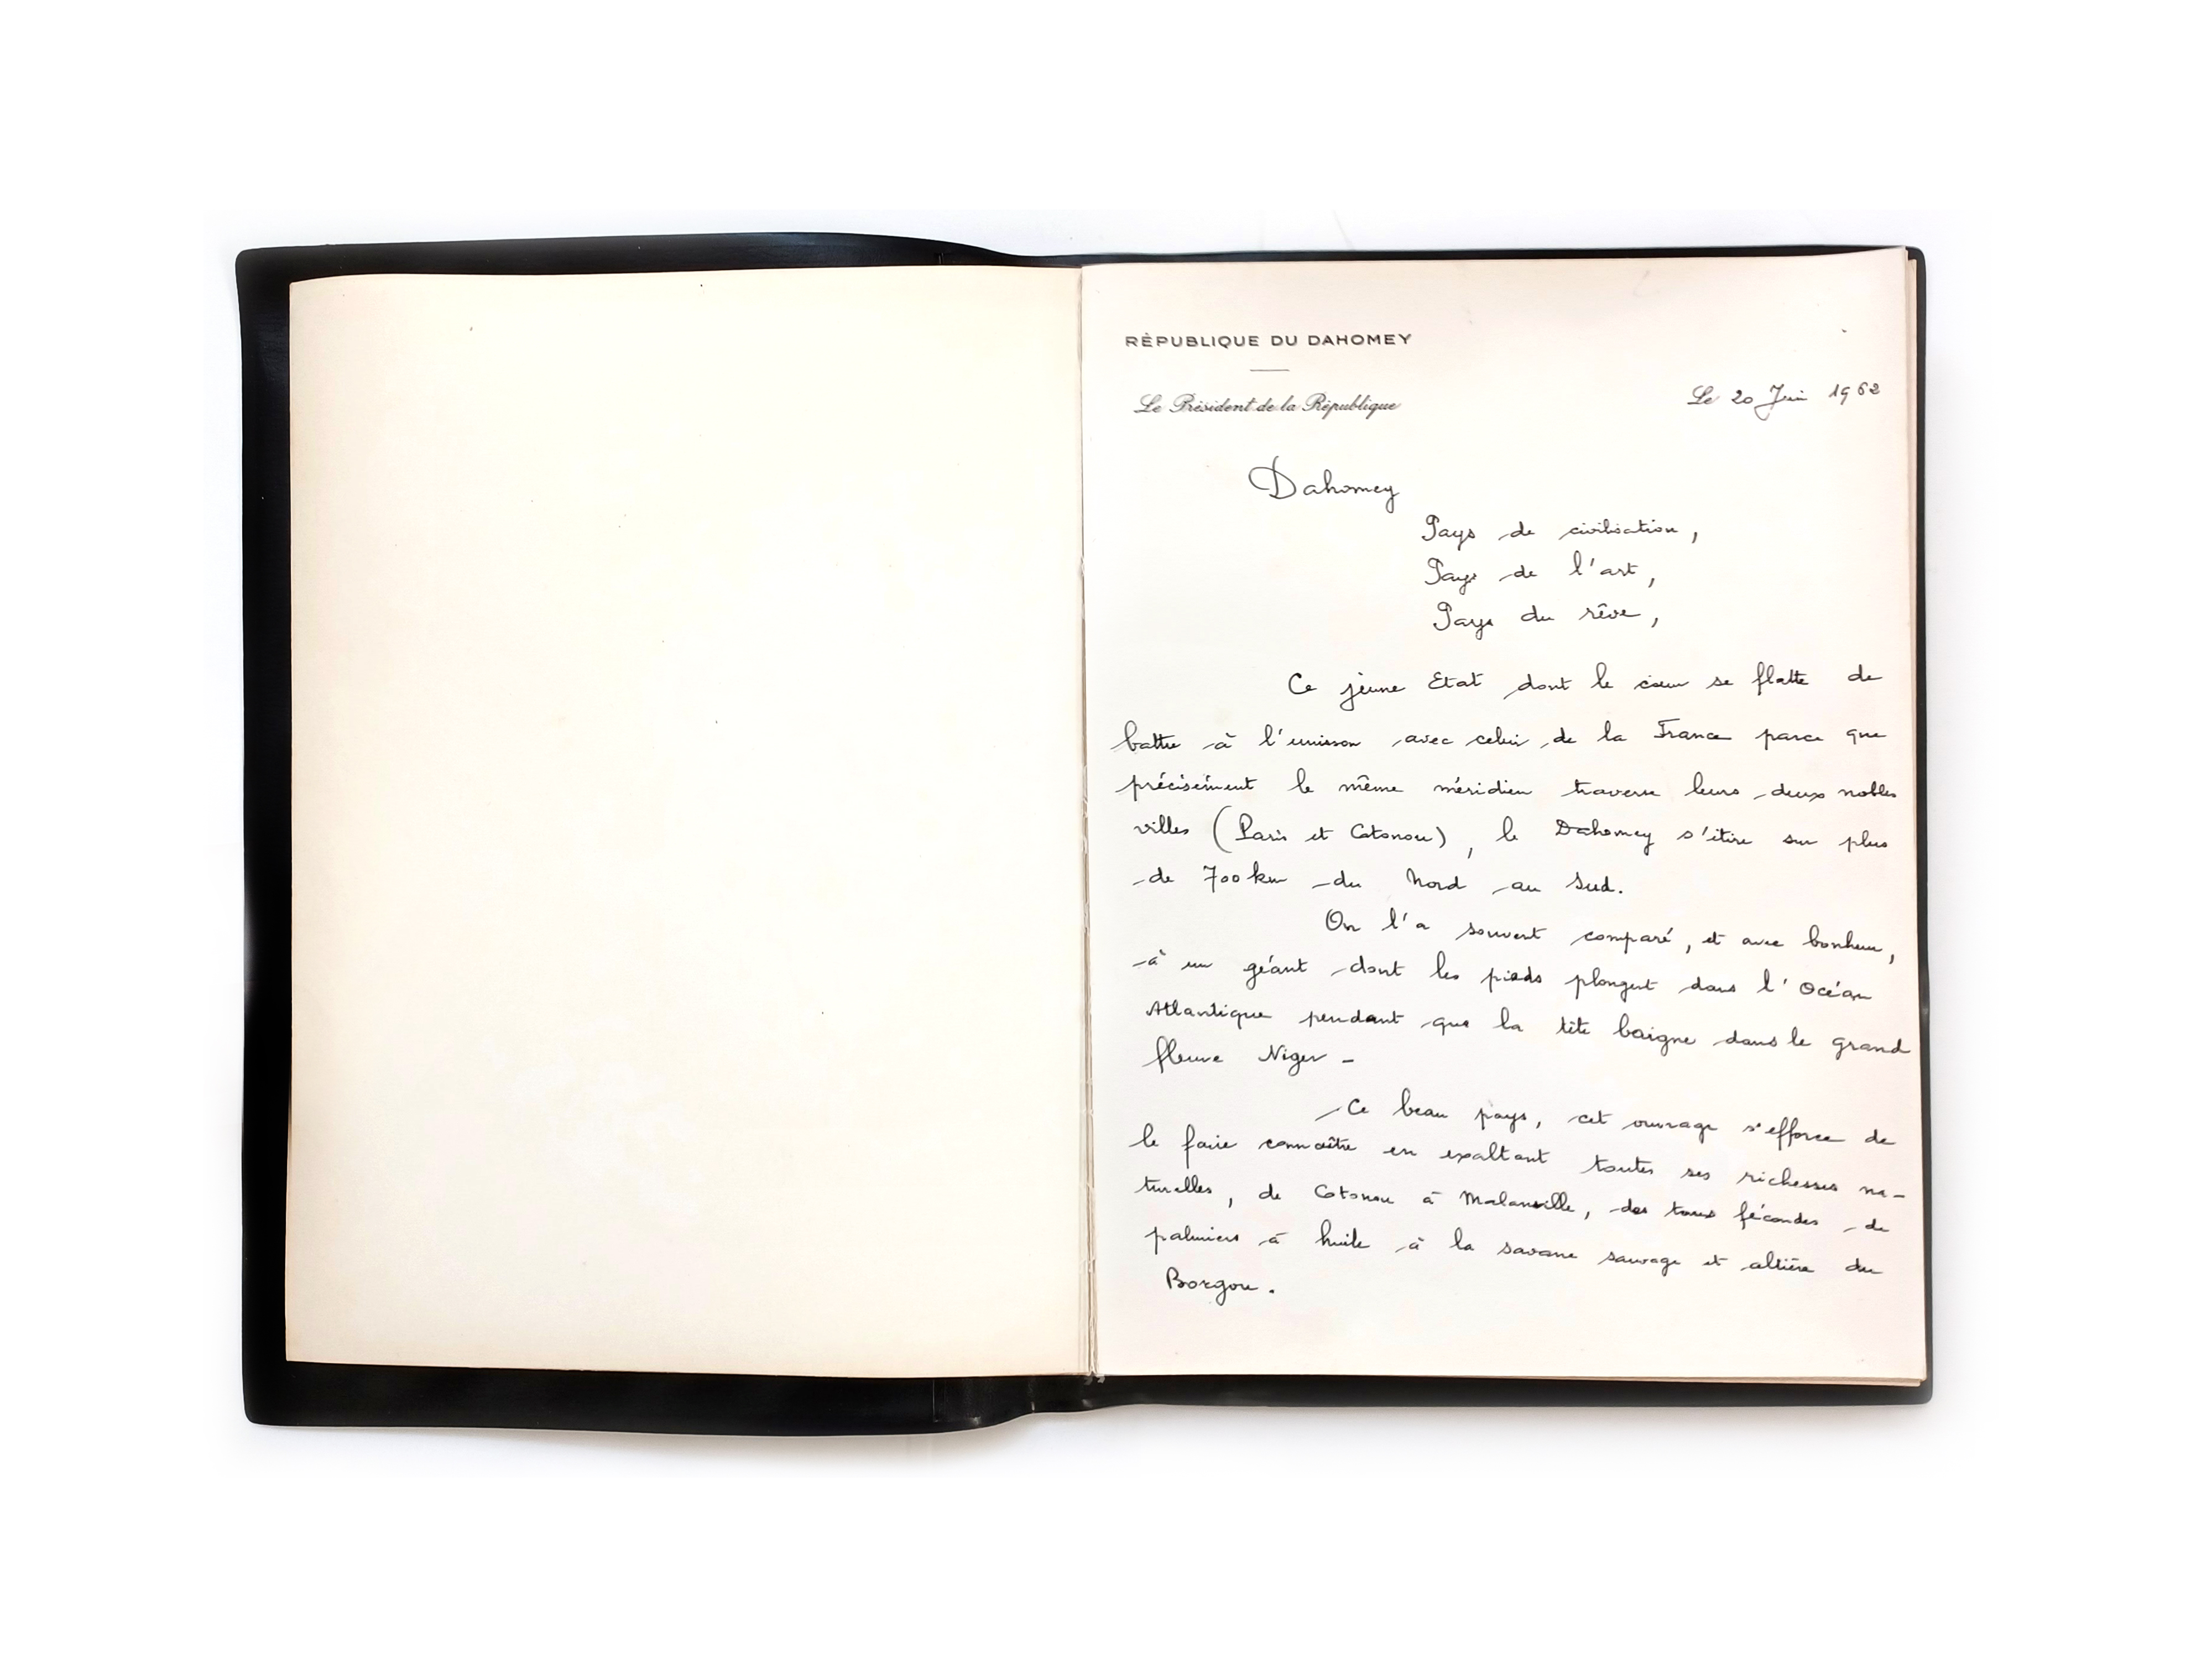 RÉPUBLIQUE DU DAHOMEY
Le Président de la République
Le 20 Juin 1962
Dahomey
Pays de civilisation,
Pays de l'art,
Pays du rêve,
Ce jeune Etat dont le cœur se flatte de
battre à l'unisson avec celui de la France parce que
précisément le même méridien traverse leurs deux nobles
villes (Paris et Cotonou), le Dahomey s'étire sur plus
de 700 km du Nord au Sud.
On l'a souvent comparé, et avec bonheur,
à un géant dont les pieds plongent dans l'Océan
Atlantique pendant que la tête baigne dans le grand
fleuve Niger -
Ce beau pays, cet ouvrage s'efforce de
le faire connaître en exaltant toutes ses richesses na-
turelles, de Cotonou à Malanville, des terres fécondes de
palmiers à huile à la savane sauvage et altière du
Borgou.